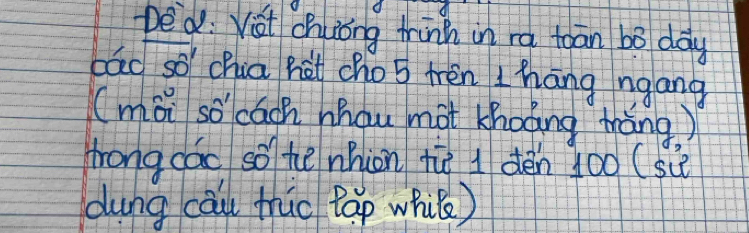 Đề 2: Viết chương trình in ra toàn bộ dãy
các số chia hết cho 5 trên 1 hàng ngang
(mỗi số cách nhau một khoảng trắng)
trong các số tự nhiên từ 1 đến 100 (sử
dụng cấu trúc lặp while)